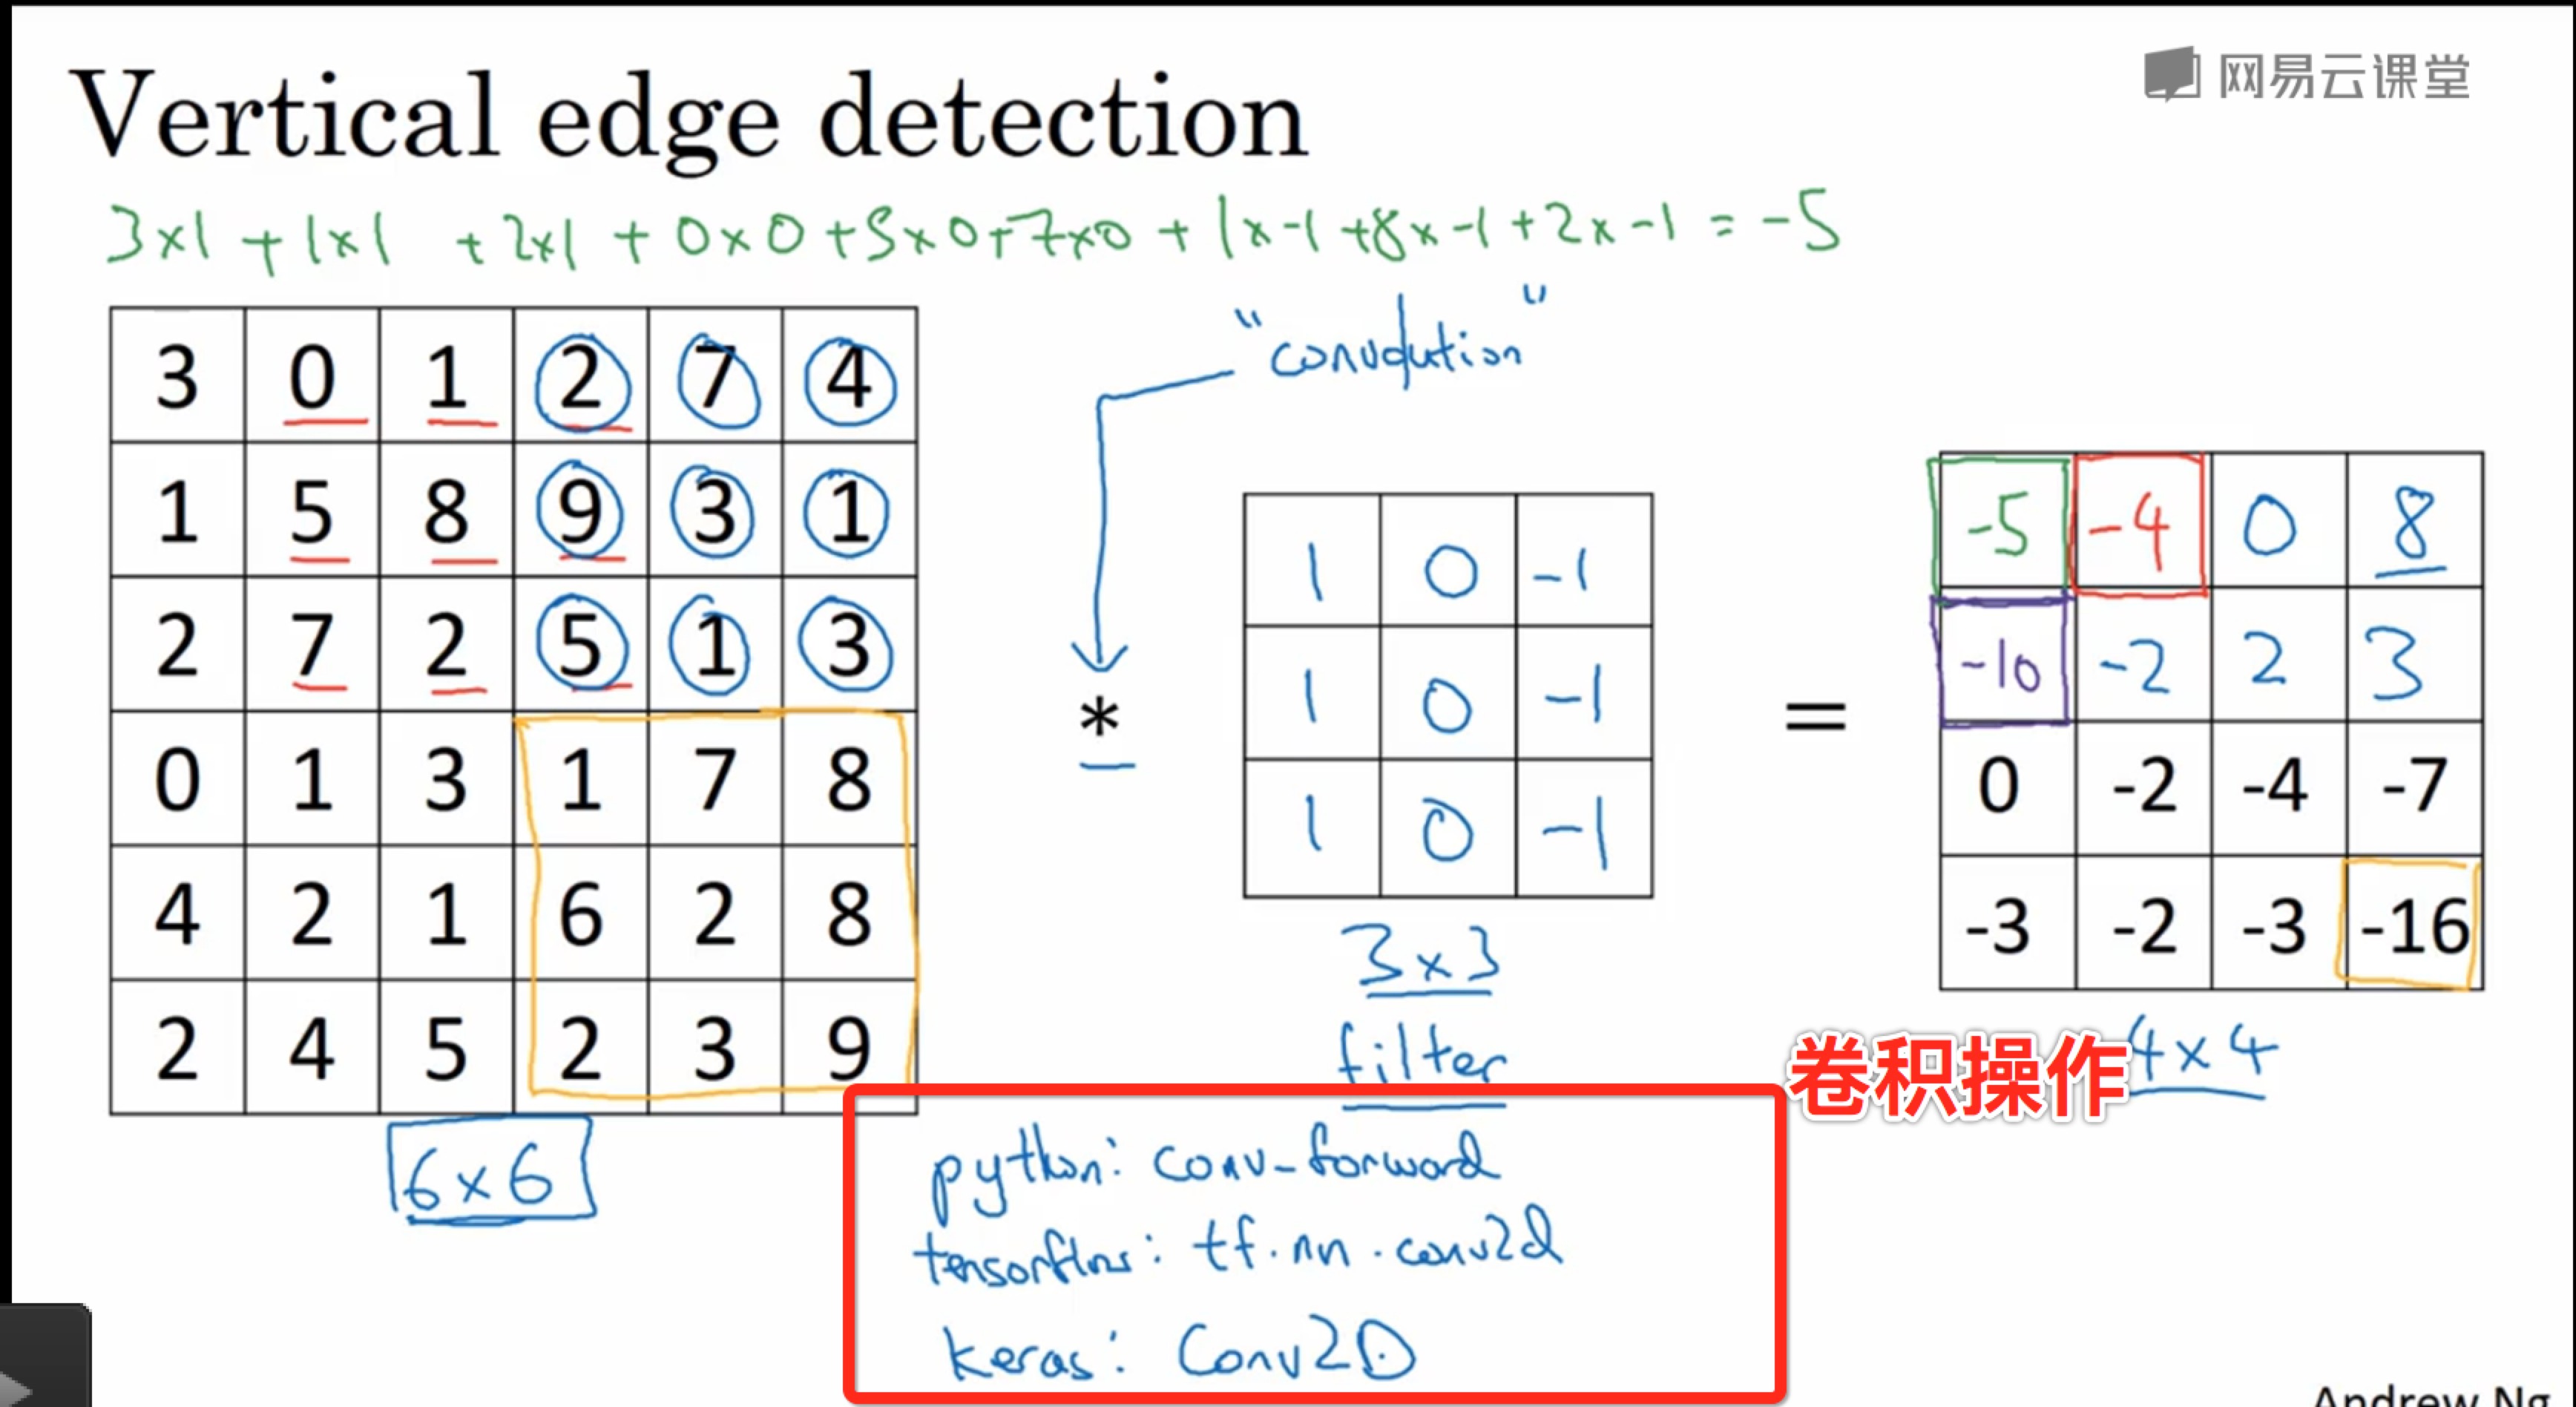 网易云课堂
Vertical edge detection
3x1 + 1x1 + 2x1 + 0x0 + 5x0 + 7x0 + 1x-1 + 8x-1 + 2x-1 = -5
"convolution"
3 0 1 2 7 4
1 5 8 9 3 1
2 7 2 5 1 3
0 1 3 1 7 8
4 2 1 6 2 8
2 4 5 2 3 9
6x6
*
1 0 -1
1 0 -1
1 0 -1
3x3
filter
=
-5 -4 0 8
-10 -2 2 3
0 -2 -4 -7
-3 -2 -3 -16
4x4
卷积操作
python: conv-forward
tensorflow: tf.nn.conv2d
keras: Conv2D
Andrew Ng